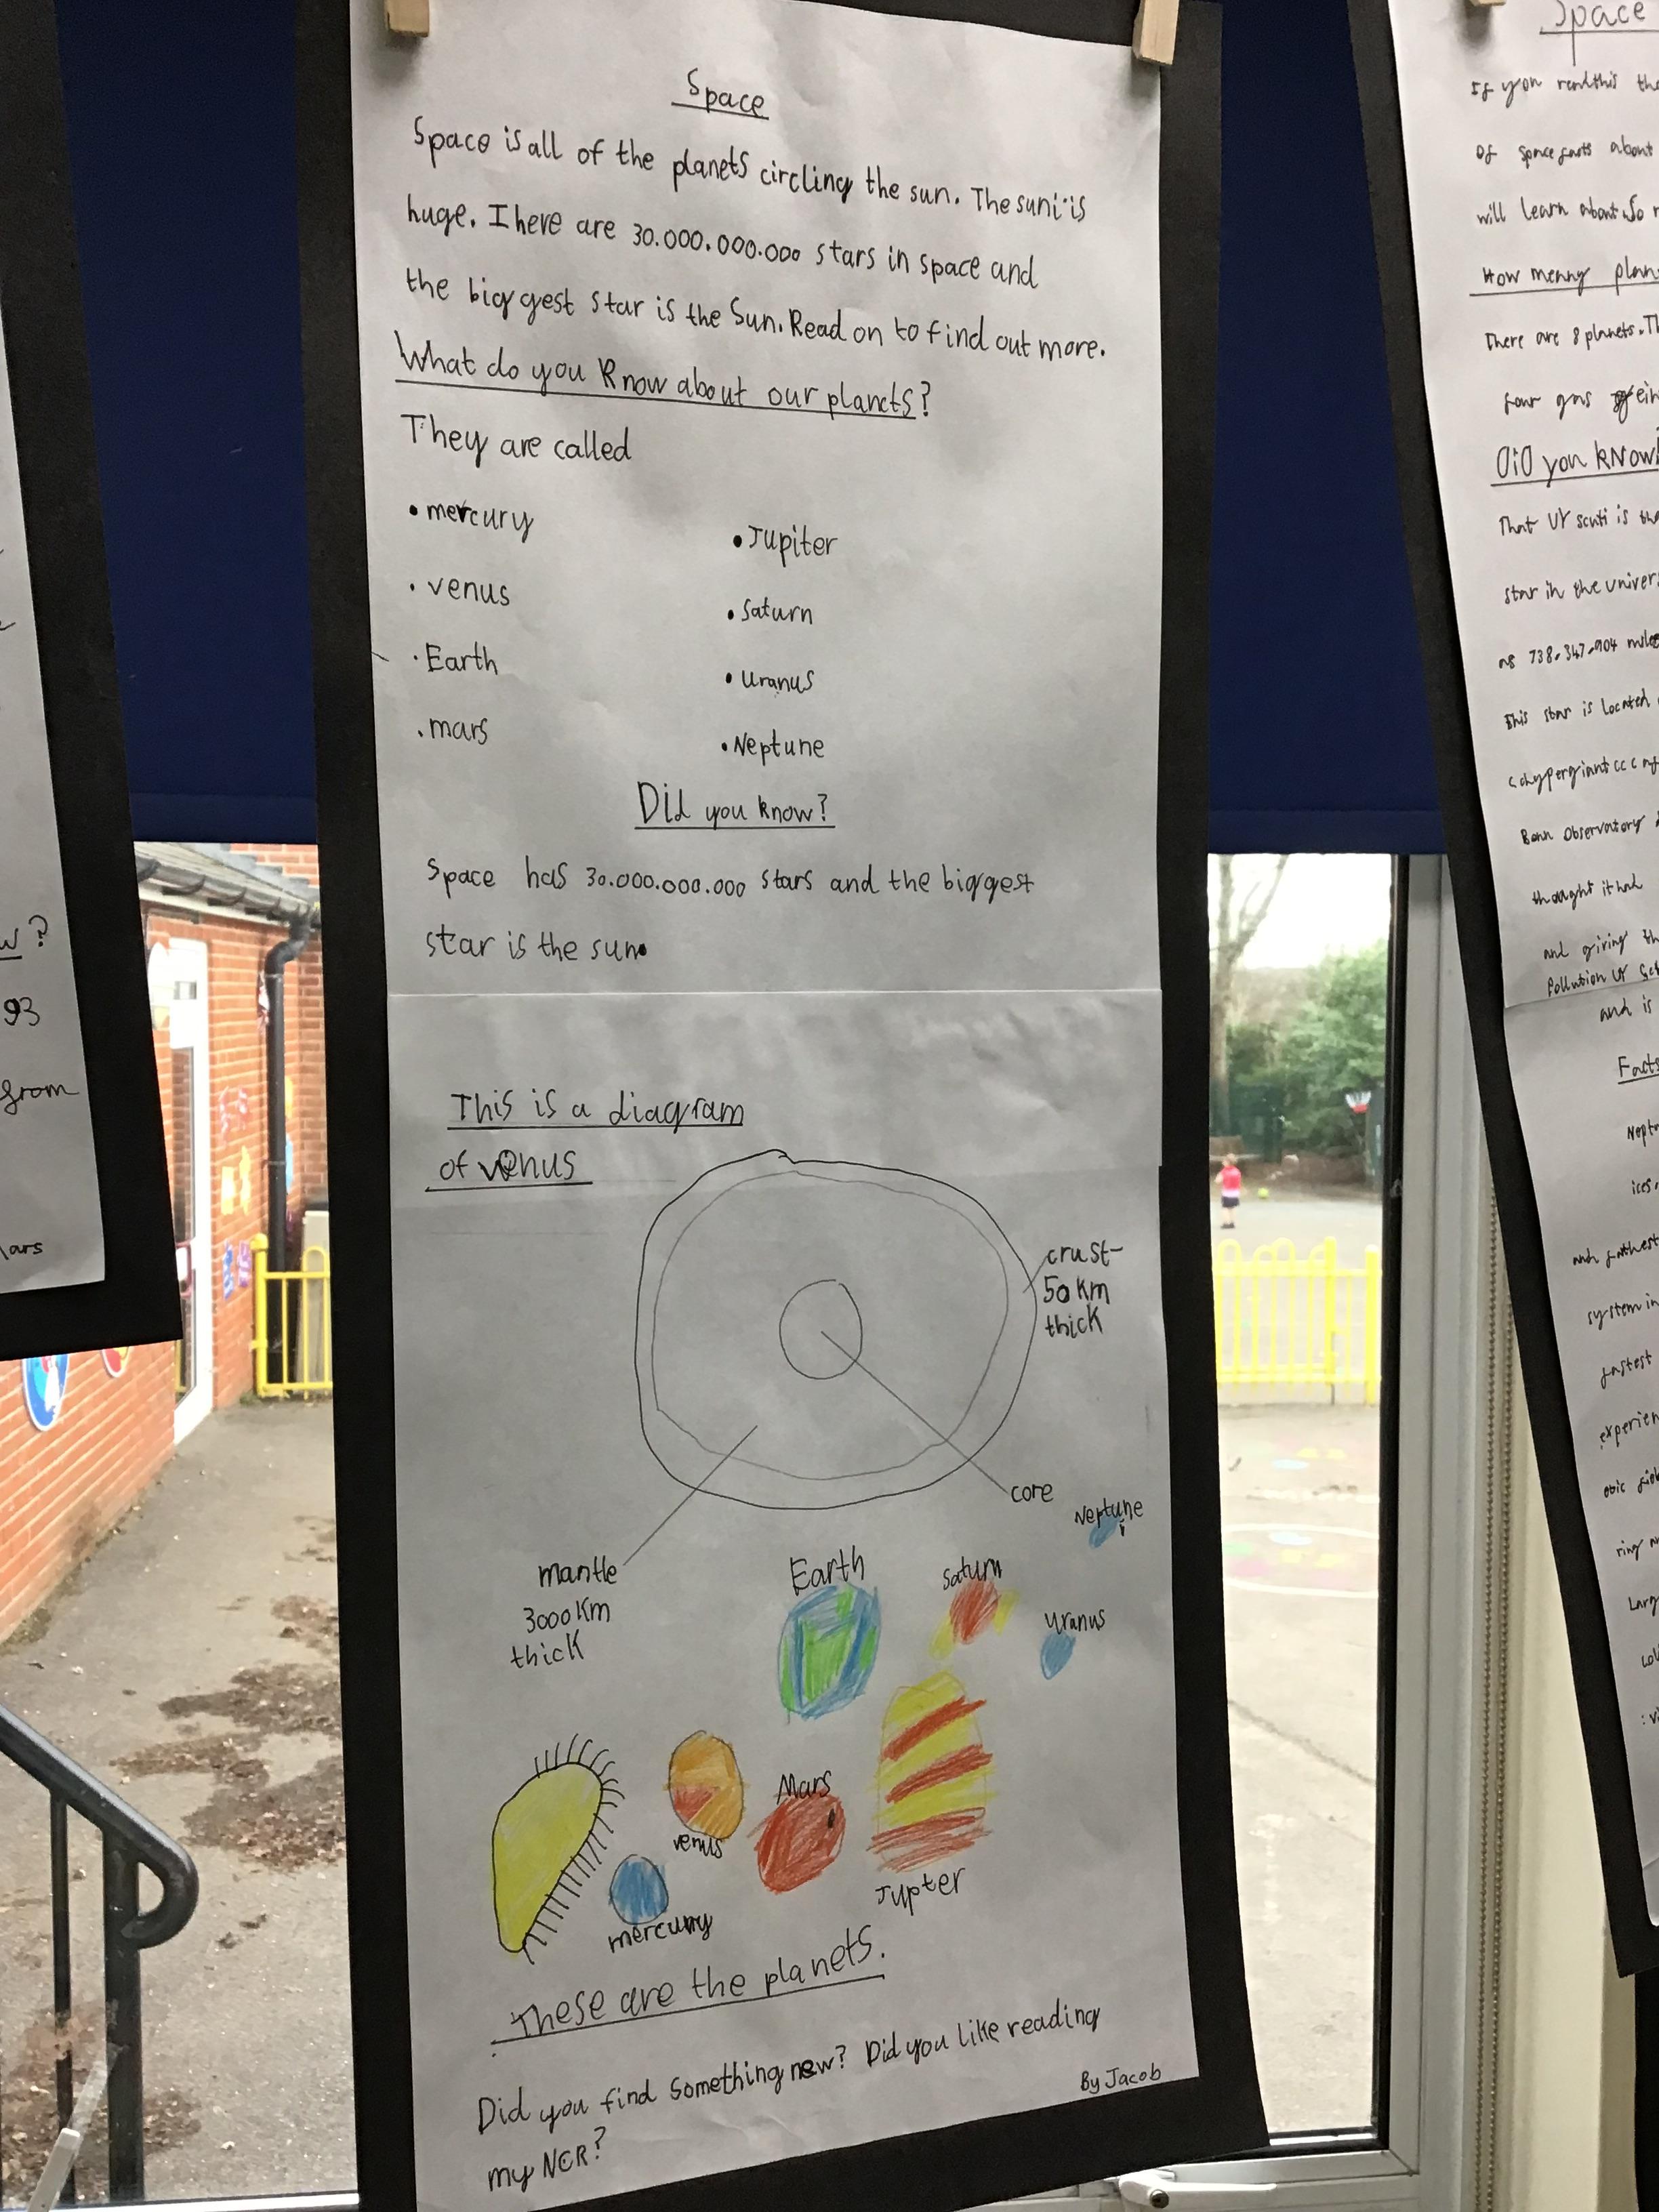 Space
Space is all of the planets circling the sun. The sun is
huge. There are 30.000.000.000 stars in space and
the biggest star is the Sun. Read on to find out more.
What do you know about our planets?
They are called
• mercury
• venus
• Earth
• mars
• Jupiter
• Saturn
• Uranus
• Neptune
Did you know?
Space has 30.000.000.000 stars and the biggest
star is the sun.
This is a diagram
of venus
crust-
50 km
thick
core
mantle
3000 Km
thick
Neptune
Earth
Saturn
Uranus
venus
Mars
mercury
Jupter
These are the planets.
Did you find something new? Did you like reading
my NCR?
By Jacob
w?
93
from
Space
If you read this
of space facts about
will learn about
How menny
There are 8 planets.
four gas
Did you know
That UY scuti is
star in the
as 738.347.904
This star is located
Bonn Observatory
thought it had
and giving
Pollution UY
and is
ices.
and
system in
fastest
ring